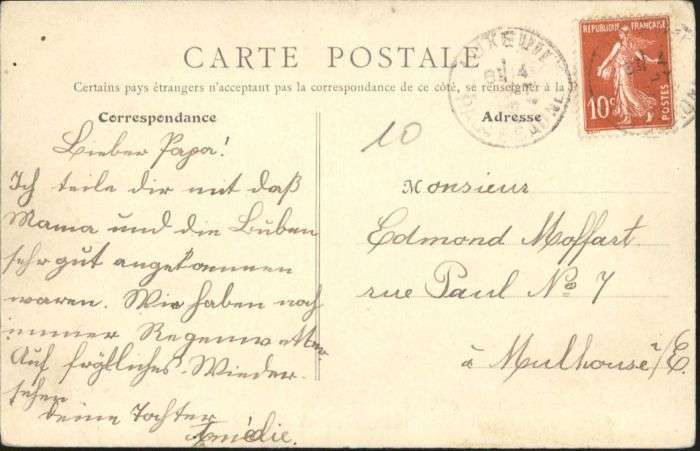 CARTE POSTALE
Certains pays étrangers n'acceptant pas la correspondance de ce côté, se renseigner à la
Correspondance
Lieber Papa!
Ich teile dir mit daß
Mama und die Buben
sehr gut angekommen
waren. Wir haben noch
immer Regenwetter
Auf fröhliches Wieder-
sehen
deine Tochter
Amédie.
10
RÉPUBLIQUE FRANÇAISE
10c
POSTES
Adresse
Monsieur
Edmond Moffart
rue Paul No 7
à Mulhouse /E.